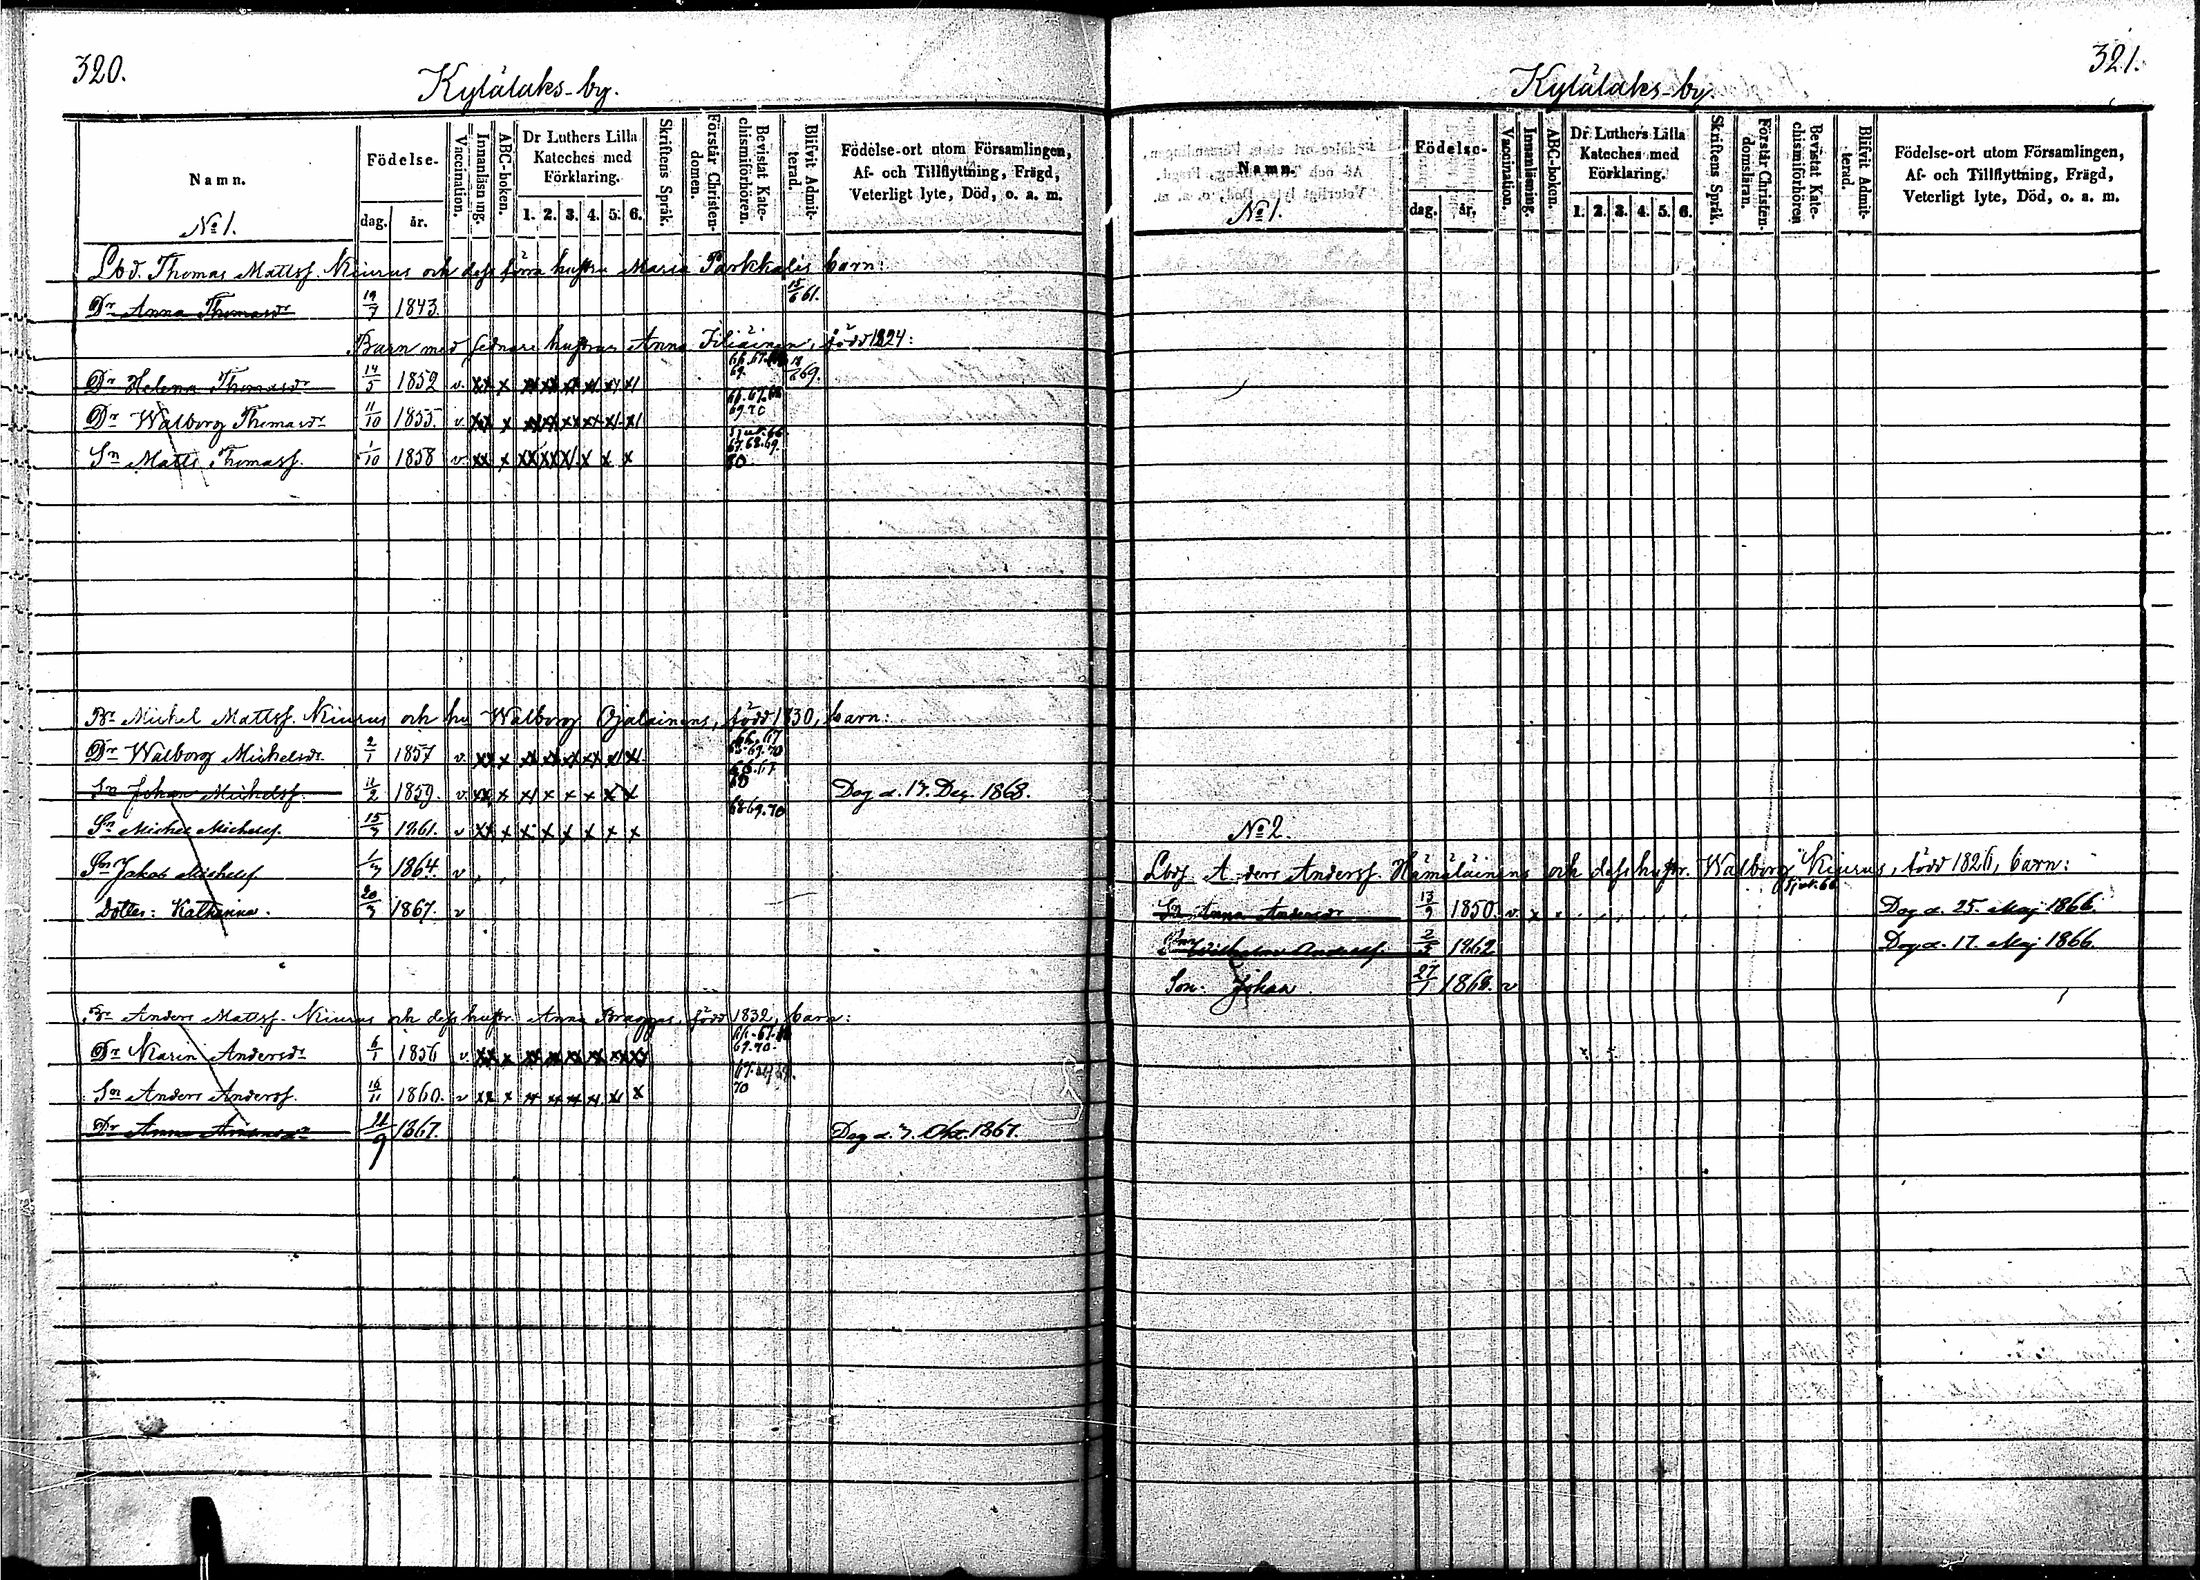 320.
Kylälaks-by.
Namn.
Födelse-
dag. år.
Vaccination.
Innanläsning.
ABC-boken.
Dr Luthers Lilla
Kateches med
Förklaring.
1. 2. 3. 4. 5. 6.
Skriftens Språk.
Förstår Christen-
domen.
Bevistat Kate-
chismiförhören.
Blifvit Admit-
terad.
Födelse-ort utom Församlingen,
Af- och Tillflyttning, Frägd,
Veterligt lyte, Död, o. a. m.
No 1.
Lbd. Thomas Mattsf. Kiurus och dess förra hustru Maria Parkkalis barn:
Dr Anna Thomasdr 19/7 1843. 15/6 61.
Barn med sednare hustrun Anna född 1824:
Dr Helena Thomasdr 14/5 1852 v. xx x 66.67. 69. 69.
Dr Walborg Thomasdr 11/10 1855. v. xx x 66.67. 69.70
Sn Matts Thomasf. 1/10 1858 v. xx x 67 68.69.
Br Michel Mattsf. Kiurus och hu Walborg Ojalainens, född 1830, barn:
Dr Walborg Michelsdr. 2/1 1857 v. xx x 66.67 69.70
Sn Johan Michelsf. 11/2 1859. v. xx x 66.67 68 Dog d. 17. Dez. 1868.
Sn Michel Michelsf. 15/7 1861. v xx x 68.69.70
Sn Jakob Michelsf. 1864. v
Dotter: Katharina. 20/3 1867. v
Br Anders Mattsf. Kiurus och dess hustr. Anna född 1832, barn:
Dr Karin Andersdr 6/1 1856 v. xx x 69.70.
Sn Anders Andersf. 16/11 1860. v xx x 70
Dr Anna Andersdr 1867. Dog d. 7. Okt. 1867.
321.
Kylälaks-by.
Namn.
Födelse-
dag. år.
Vaccination.
Innanläsning.
ABC-boken.
Dr Luthers Lilla
Kateches med
Förklaring.
1. 2. 3. 4. 5. 6.
Skriftens Språk.
Förstår Christen-
domsläran.
Bevistat Kate-
chismiförhören
Blifvit Admit-
terad.
Födelse-ort utom Församlingen,
Af- och Tillflyttning, Frägd,
Veterligt lyte, Död, o. a. m.
No 1.
No 2.
Anders Andersf. Hämäläinens och dess hustr. Walborg Kiurus, född 1826, barn:
Anna Andersdr 13/9 1850. v. x x Dog d. 25. Maj 1866.
Wilhelm Andersf. 2/5 1862 Dog d. 17. Maj 1866.
Son. Johan. 27/1 1868. v